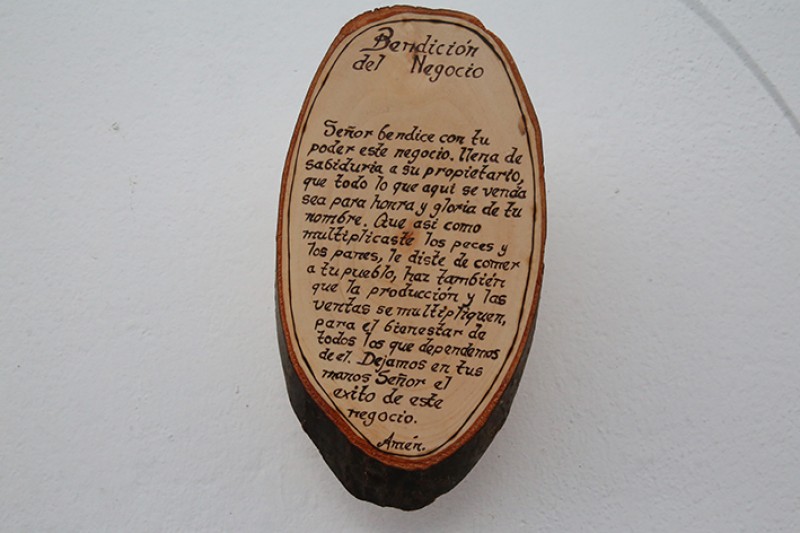 Bendición
del Negocio
Señor bendice con tu
poder este negocio. llena de
sabiduria a su propietario,
que todo lo que aqui se venda
sea para honra y gloria de tu
nombre. Que asi como
multiplicaste los peces y
los panes, le diste de comer
a tu pueblo, haz también
que la producción y las
ventas se multipliquen,
para el bienestar de
todos los que dependemos
de el. Dejamos en tus
manos Señor el
exito de este
negocio.
Amén.